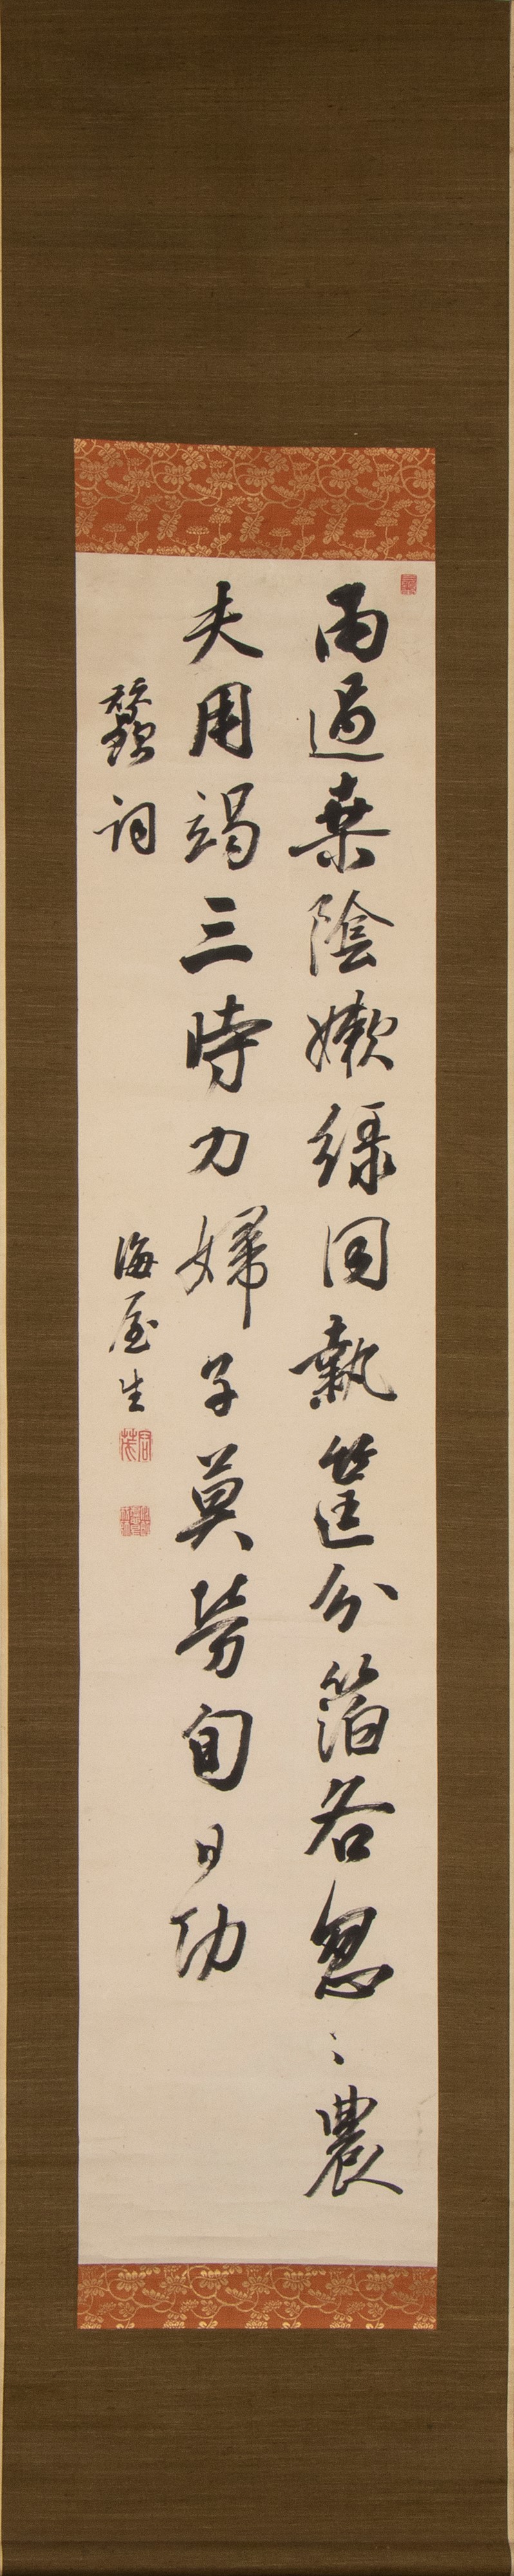 雨過桒陰嫩緑同執筐分箔各怱〻農
夫用竭三時力婦子莫勞旬日功
蠶詞
海屋生
君茂